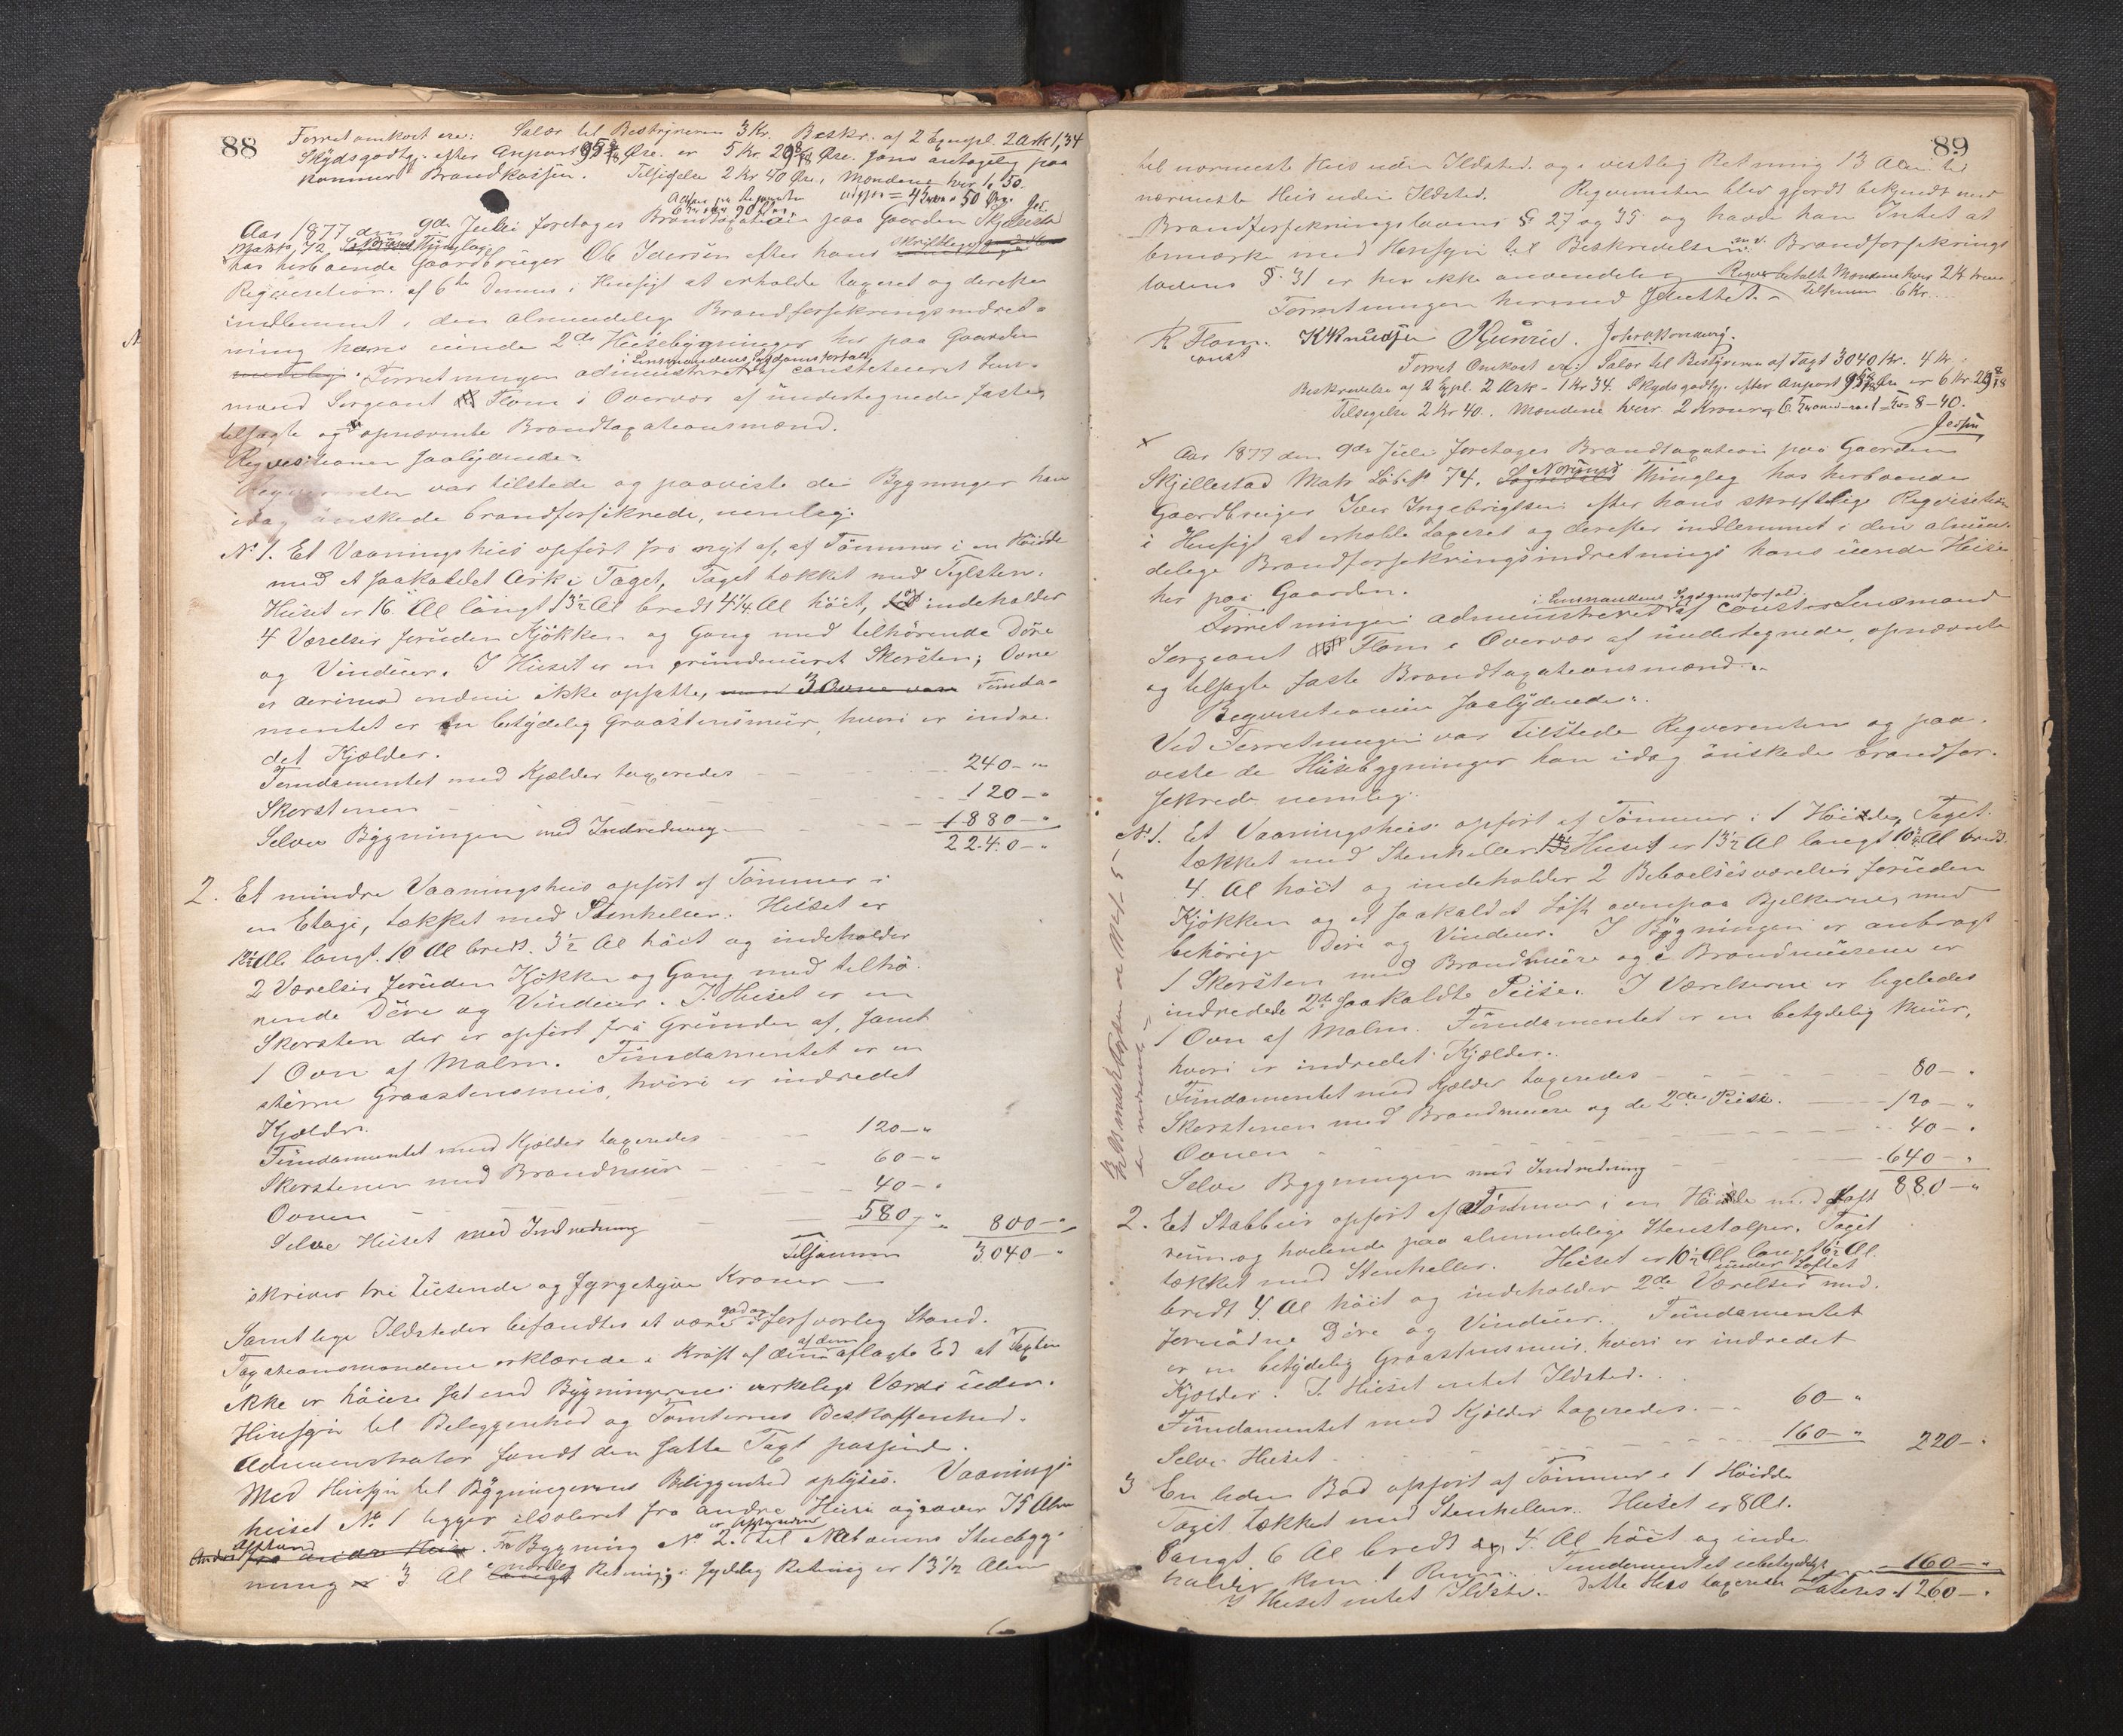 88
Forretomkost ere: Salær til Bestyreren 3 Kr. Beskr. af 2 Exempl. 2 Ark 1,34
Skydsgodtg. efter Anport Øre. er 5 Kr. Øre. som antagelig paa
kommer Brandkassen. Tilsigelse 2 Kr 40 Øre, Mændene hver 1,50.
Aar 1877 den 9de Juli foretoges Brandtaxation paa Gaarden Skjellestad
Matr No 72, Norums Thinglag
hos herboende Gaardbruger Ole Iversen efter hans skriftlige
Reqvisition af 6te Dennes i Hensigt at erholde taxeret og derefter
indlemmet i den almindelige Brandforsikringsindret-
ning hans eiende 2de Huusebygninger her paa Gaarden
nemlig. Forretningen administreret i Lensmandens Sygdomsforfald af constitueret Lens-
mand Sergeant Flom i Overvær af undertegnede faste,
tilsagte og opnævnte Brandtaxationsmænd.
Reqvisitionen saalydende:
Reqvirenten var tilstede og paaviste de Bygninger han
idag ønskede brandforsikrede, nemlig:
No 1. Et Vaaningshuus opført fra nyt af, af Tømmer i en Høide
med et saakaldet Ark i Taget, Taget tækket med Teglsten.
Huset er 16 Al langt 13½ Al bredt 4¼ Al høit, og indeholder
4 Værelser foruden Kjøkken og Gang med tilhørende Døre
og Vinduer. I Huset er en grundmuret Skorsten; Ovne
er derimod endnu ikke opsatte, Funda-
mentet er en betydelig Graastensmuur, hvori er indre-
det Kjælder.
Fundamentet med Kjælder taxeredes 240 - "
Skorstenen 120 - "
Selve Bygningen med Indredning 1880 - "
2240 - "
2. Et mindre Vaaningshuus opført af Tømmer i
en Etage, tækket med Stenheller. Huset er
12½ Al langt. 10 Al bredt. 3½ Al høit og indeholder
2 Værelser foruden Kjøkken og Gang med tilhø-
rende Døre og Vinduer. I Huset er en
Skorsten der er opført fra Grunden af, samt
1 Ovn af Malm. Fundamentet er en
større Graastensmuur, hvori er indredet
Kjælder.
Fundamentet med Kjælder taxeredes 120 - "
Skorstenen med Brandmuur 60 - "
Ovnen 40 - "
Selve Huset med Indredning 580 - " 800 - "
Tilsammen 3040 - "
skriver tre tusende og fyrgetyve Kroner
Samtlige Ildsteder befandtes at være i god og forsvarlig Stand.
Taxationsmændene erklærede i Kraft af den af dem aflagte Ed at Taxten
ikke er høiere sat end Bygningernes virkelige Værdi uden
Hensyn til Beliggenhed og Tomternes Beskaffenhed.
Administrator fandt den satte Taxt passende.
Med Hensyn til Bygningernes Beliggenhed oplyses: Vaanings-
huset No 1 ligger isoleret fra andre Huse og over 75 Alen
Afstand fra andre Huse. Fra Bygning No 2 til Naboens Stuebyg-
ning er 3 Al i nordlig Retning, i sydlig Retning er 13½ Alen
89
til nærmeste Huus uden Ildsted og i vestlig Retning 13 Alen til
nærmeste Huus uden Ildsted. Reqvirenten blev gjordt bekjendt med
Brandforsikringslovens § 27 og 35 og havde han Intet at
bemærke med Hensyn til Beskrivelsen m.v. Brandforsikrings
lovens § 31 er her ikke anvendelig. Reqvir. betalte Mændene hver 2 Kroner
Forretningen hermed sluttet. Tilsammen 6 Kr.
R Flom. K Knudsen
const
Forret. Omkost ere: Salær til Bestyreren af Taxt 3040 Kr. 4 Kr.
Beskrivelse af 2 Expl. 2 Ark - 1 Kr 34. Skydsgodtg. efter Anport Øre er 6 Kr.
Tilsigelse 2 Kr 40. Mændene hver 2 Kroner 8-40.
Aar 1877 den 9de Juli foretoges Brandtaxation paa Gaarden
Skjellestad Matr Løb No 74, Norums Thinglag hos herboende
Gaardbruger Iver Ingebrigtsen efter hans skriftlige Reqvisition
i Hensigt at erholde taxeret og derefter indlemmet i den almin-
delige Brandforsikringsindretning hans eiende Huse
her paa Gaarden.
Forretningen administreret i Lensmandens Sygdomsforfald af const Lensmand
Sergeant Flom i Overvær af undertegnede, opnævnte
og tilsagte faste Brandtaxationsmænd.
Reqvisitionen saalydende:
Ved Forretningen var tilstede Reqvirenten og paa-
viste de Huusebygninger han idag ønskede brandfor-
sikrede nemlig:
No 1. Et Vaaningshuus opført af Tømmer i 1 Høide, Taget
tækket med Stenheller. Huset er 13½ Al langt 10½ Al bredt
4 Al høit og indeholder 2 Beboelsesværelser foruden
Kjøkken og et saakaldet Loft ovenpaa Bjelkerne, med
behørige Døre og Vinduer. I Bygningen er anbragt
1 Skorsten med Brandmure og i Brandmurene er
indredede 2de saakaldte Peise. I Værelserne er ligeledes
1 Ovn af Malm. Fundamentet er en betydelig Muur,
hvori er indredet Kjælder.
Fundamentet med Kjælder taxeredes 80 - "
Skorstenen med Brandmure og de 2de Peise. 120 - "
Ovnen 40 - "
Selve Bygningen med Indredning 640 - "
880 - "
2. Et Stabbur opført af Tømmer i en Høide med Loft
rum og hvilende paa almindelige Stenstolper. Taget
tækket med Stenheller. Huset er 10½ Al langt 6½ Al
bredt 4 Al høit og indeholder 2de Værelser under Loftet med
fornødne Døre og Vinduer. Fundamentet
er en betydelig Graastensmuur, hvori er indredet
Kjælder. I Huset intet Ildsted.
Fundamentet med Kjælder taxeredes. 60 - "
Selve Huset 160 - " 220 - "
3 En liden Bod opført af Tømmer i 1 Høide
Taget tækket med Stenheller. Huset er 8 Al.
langt 6 Al bredt 4 Al høit og inde
holder kun 1 Rum. Fundamentet ubetydeligt
I Huset intet Ildsted. Dette Huus taxeredes 160 - "
Lateris 1260 - "